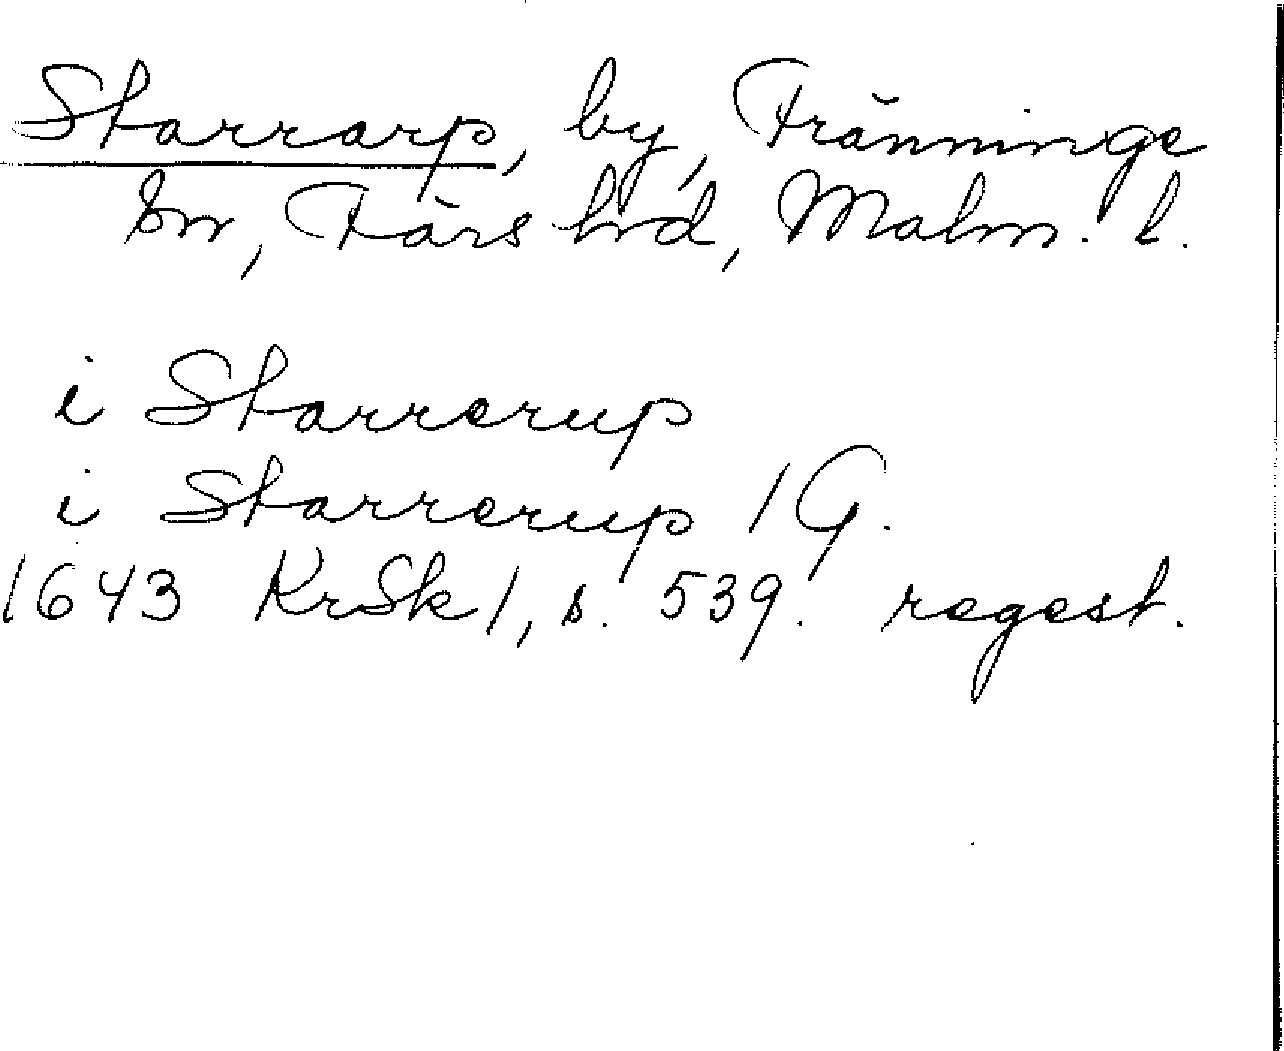 Starrarp, by, Fränninge
sn, Färs hd, Malm. l.
i Starrerup
i Starrerup 1 G.
1643 KrSk 1, s. 539. regest.